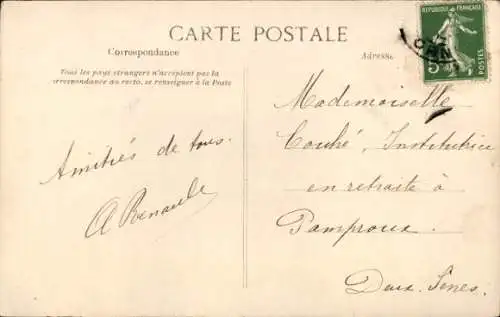 CARTE POSTALE
Correspondance
Tous les pays étrangers n'acceptent pas la
correspondance au recto, se renseigner à la Poste
Amitiés de tous.
A Renault
Adresse
REPUBLIQUE FRANÇAISE
5
POSTES
Mademoiselle
Couhé, Institutrice
en retraite à
Pamproux.
Deux-Sèvres.